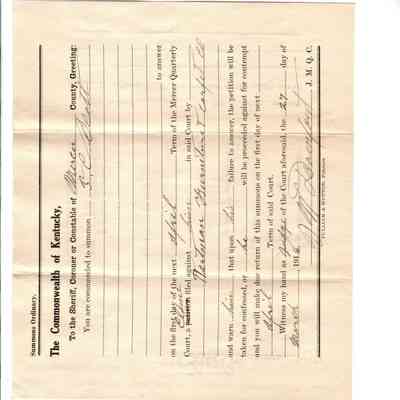 Summons Ordinary.
The Commonwealth of Kentucky,
To the Sheriff, Coroner or Constable of Mercer County, Greeting:
You are commanded to summon
to answer
on the first day of the next April Term of the Mercer Quarterly
Court, a filed against him in said Court by
Furniture & Carpet Co
and warn him that upon his failure to answer, the petition will be
taken for confessed, or he will be proceeded against for contempt
and you will make due return of this summons on the first day of next
April Term of said Court.
Witness my hand as Judge of the Court aforesaid, the 27 day of
March 191
J. M. Q. C.